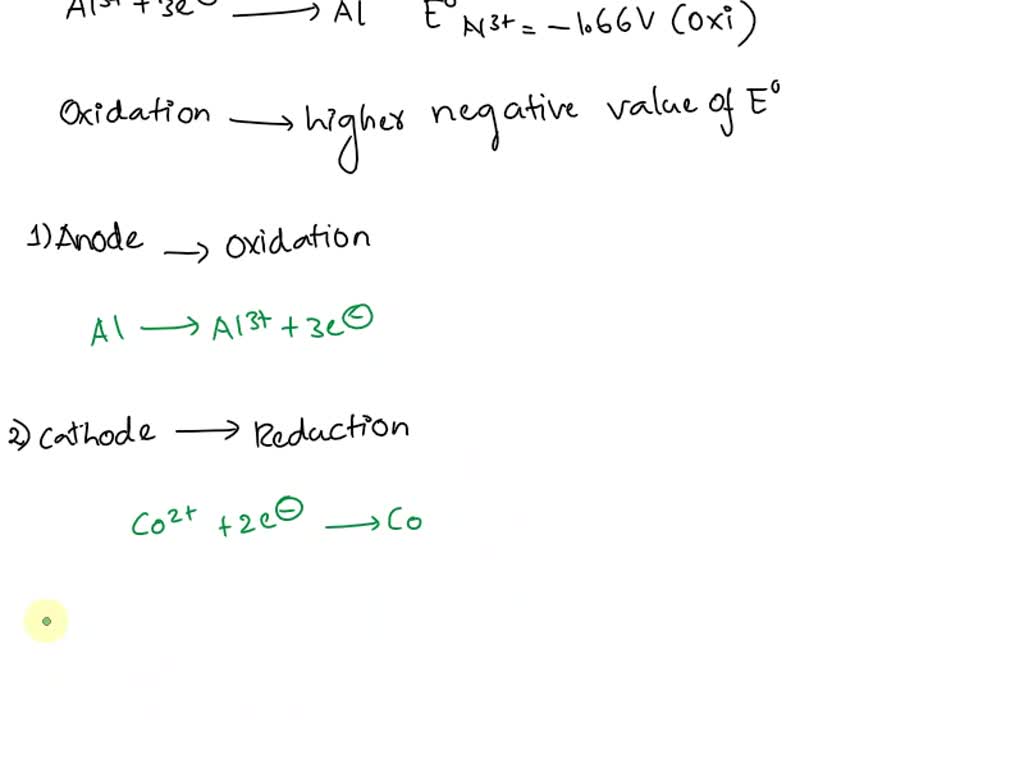 Al³⁺ + 3e⊖ ⟶ Al E⁰ Al³⁺ = -1.66V (oxi)
Oxidation ⟶ higher negative value of E⁰
1) Anode ⟶ oxidation
Al ⟶ Al³⁺ + 3e⊖
2) Cathode ⟶ Reduction
Co²⁺ + 2e⊖ ⟶ Co